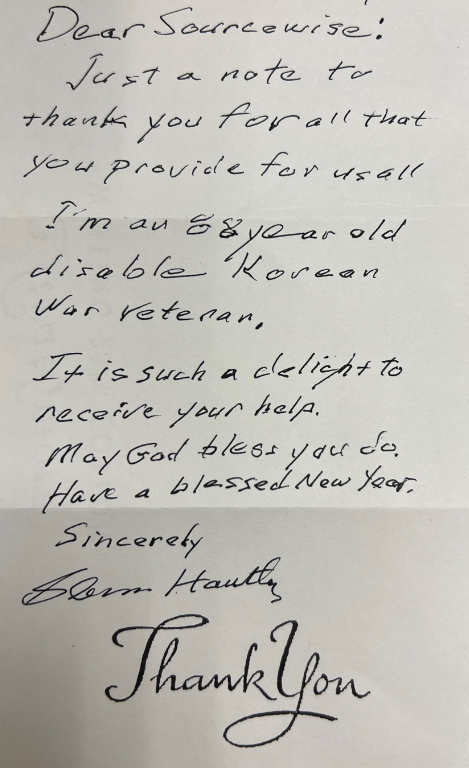 Dear Sourcewise:
Just a note to
thank you for all that
you provide for us all
I'm an 88 year old
disable Korean
War Veteran.
It is such a delight to
receive your help.
May God bless you do.
Have a blessed New Year.
Sincerely
Thank You